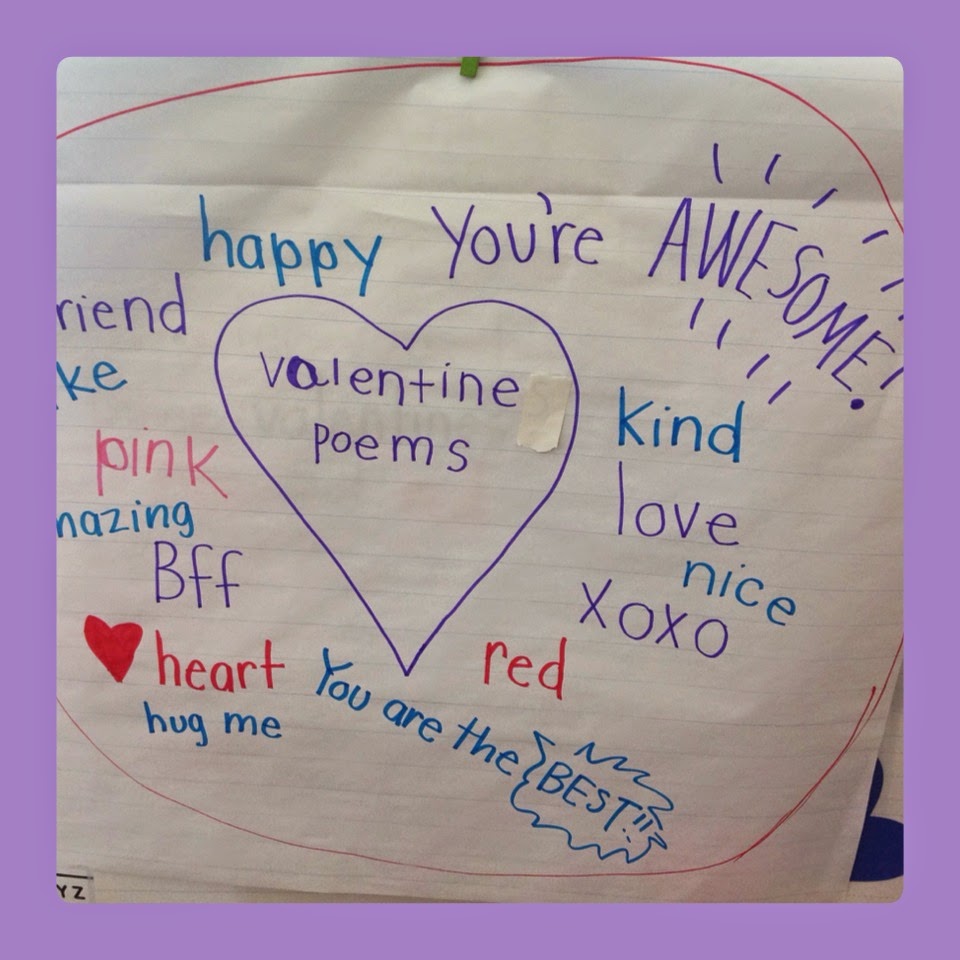 happy You're AWESOME!
riend
ke
pink
mazing
Bff
heart
hug me
valentine
poems
kind
love
nice
XOXO
red
You are the BEST!!
YZ